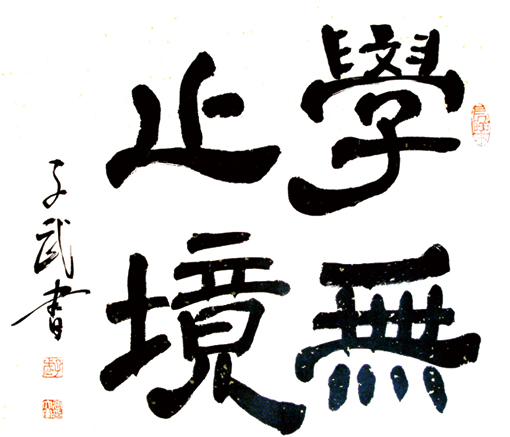 學無
止境
子武書